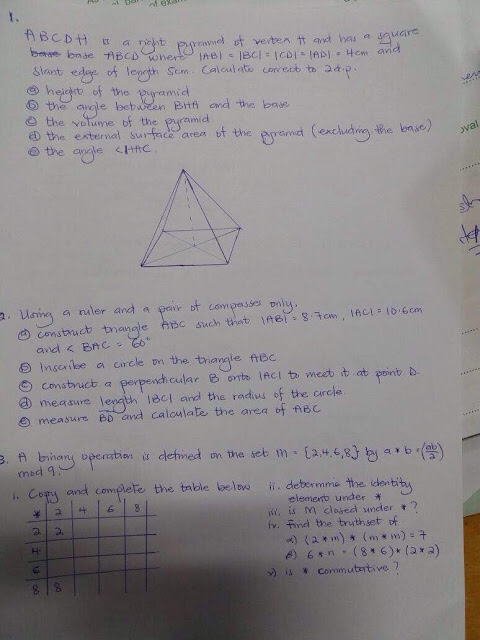 1.
ABCDH is a right pyramid of vertex H and has a square
base base ABCD where |AB| = |BC| = |CD| = |AD| = 4cm and
slant edge of length 5cm. Calculate correct to 2d.p.
(a) height of the pyramid
(b) the angle between BHA and the base
(c) the volume of the pyramid
(d) the external surface area of the pyramid (excluding the base)
(e) the angle <HAC.
2. Using a ruler and a pair of compasses only.
(a) construct triangle ABC such that |AB| = 8.7cm, |AC| = 10.6cm
and < BAC = 60°
(b) Inscribe a circle on the triangle ABC
(c) construct a perpendicular B onto |AC| to meet it at point D.
(d) measure length |BC| and the radius of the circle.
(e) measure BD and calculate the area of ABC
3. A binary operation is defined on the set m = {2,4,6,8} by a * b = (ab/2)
mod 9.
i. Copy and complete the table below
* 2 4 6 8
2 2
4
6
8 8
ii. determine the identity
element under *
iii. is M closed under * ?
iv. find the truthset of
α) (2 * m) * (m * m) = 7
β) 6 * n = (8 * 6) * (2 * 2)
v) is * commutative ?